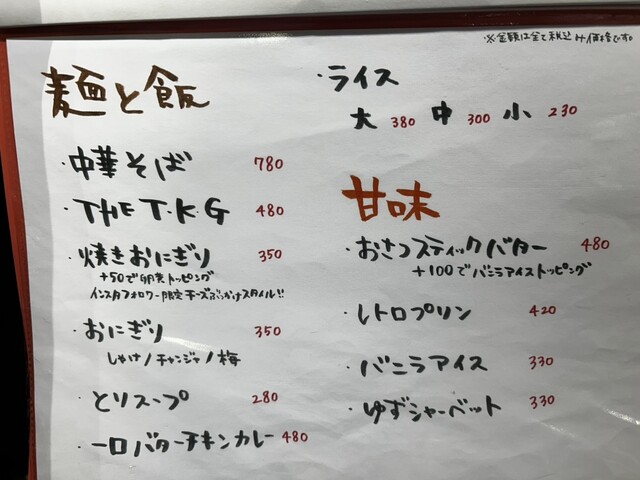 ※金額は全て税込み価格です。
麺と飯
・中華そば 780
・THE T.K.G 480
・焼きおにぎり 350
+50で卵黄トッピング
インスタフォロワー限定チーズぶっかけスタイル!!
・おにぎり 350
しゃけ/チャンジャ/梅
・とりスープ 280
・一口バターチキンカレー 480
・ライス
大 380 中 300 小 230
甘味
・おさつスティックバター 480
+100でバニラアイストッピング
・レトロプリン 420
・バニラアイス 330
・ゆずシャーベット 330